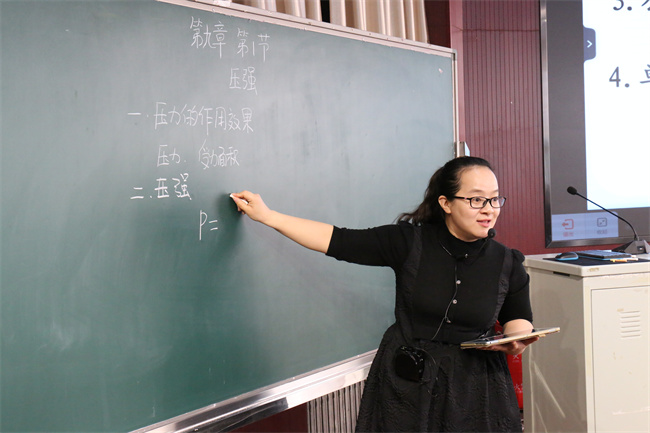 第九章 第1节
压强
一.压力的作用效果
压力、受力面积
二.压强
P=
3.
4.